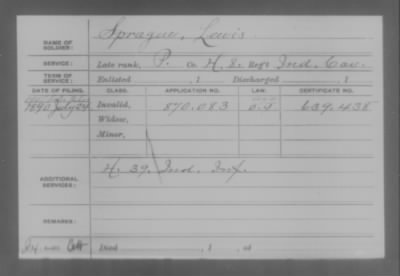 NAME OF SOLDIER: Sprague, Lewis
SERVICE: Late rank, P. Co. H. 8. Reg't Ind. Cav.
TERM OF SERVICE: Enlisted , 1 Discharged , 1
DATE OF FILING. CLASS. APPLICATION NO. LAW. CERTIFICATE NO.
1890 July 24 Invalid, 870.083 639.438
Widow,
Minor,
ADDITIONAL SERVICES: H. 39, Ind. Inf.
REMARKS:
Died , 1 , at